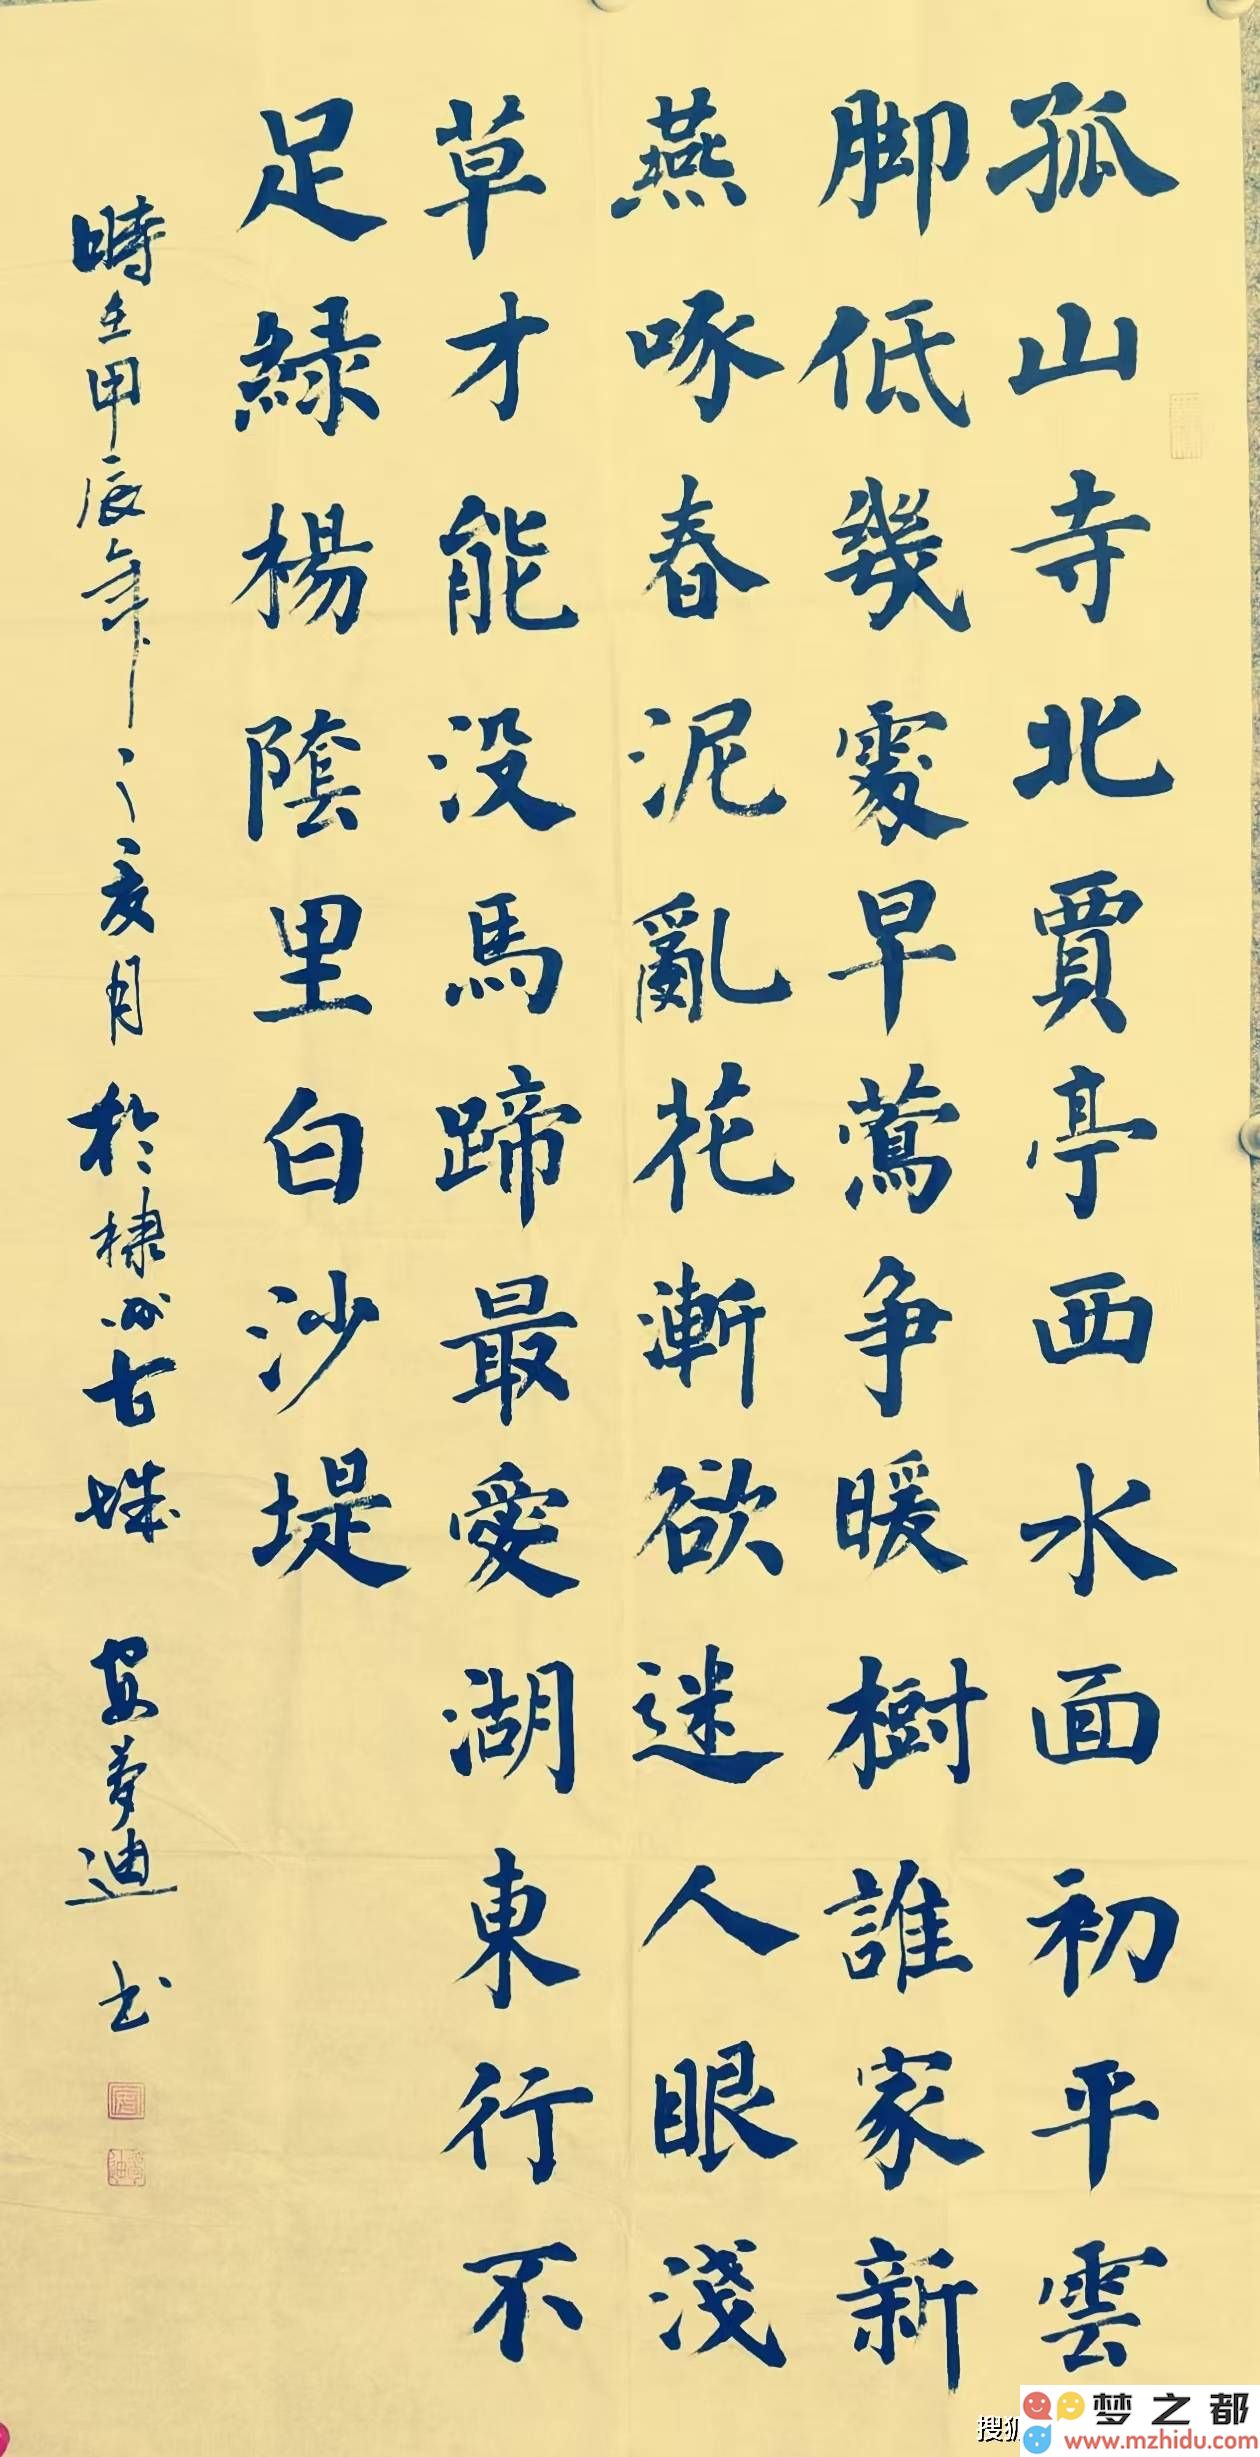 孤山寺北賈亭西水面初平雲
脚低幾處早鶯争暖樹誰家新
燕啄春泥亂花漸欲迷人眼淺
草才能没馬蹄最愛湖東行不
足緑楊隂里白沙堤
時在甲辰年之亥月於棣州古城 安夢迪 书
搜狐
梦之都
www.mzhidu.com